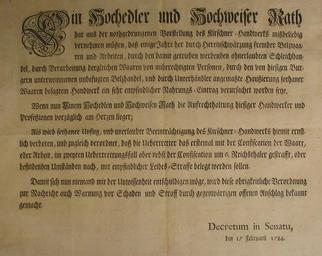 Ein Hochedler und Hochweiser Rath
hat aus der nothgedrungenen Vorstellung des Kürschner-Handwerks mißbeliebig
vernehmen müssen, daß einige Jahre her durch Hereinschwärzung fremder Belzwaa-
ren und Arbeiten, durch den damit getrieben werdenden ohnerlaubten Schleichhan-
del, durch Verarbeitung dergleichen Waaren von unberechtigten Personen, durch den von hiesigen Bur-
gern unternommenen unbefugten Belzhandel, und durch Unterhändler angemaßte Hausierung sothaner
Waaren besagtem Handwerk ein sehr empfindlicher Nahrungs-Eintrag verursachet worden seye.
Wenn nun Einem Hochedlen und Hochweisen Rath die Aufrechthaltung hiesiger Handwerker und
Professionen vorzüglich am Herzen lieget;
Als wird sothaner Unfug, und unerlaubte Beeinträchtigung des Kürschner-Handwerks hiemit ernst-
lich verboten, und zugleich verordnet, daß die Uebertretter das erstemal mit der Confiscation der Waare,
oder Arbeit, im zweyten Uebertrettungsfall aber nebst der Confiscation um 6. Reichsthaler gestrafft, oder
befindenden Umständen nach, mit empfindlicher Leibes-Straffe belegt werden sollen.
Damit sich nun niemand mit der Unwissenheit entschuldigen möge, wird diese obrigkeitliche Verordnung
zur Nachricht auch Warnung vor Schaden und Straff durch gegenwärtigen offenen Anschlag bekannt
gemacht.
Decretum in Senatu,
den 17 Februarii 1784.